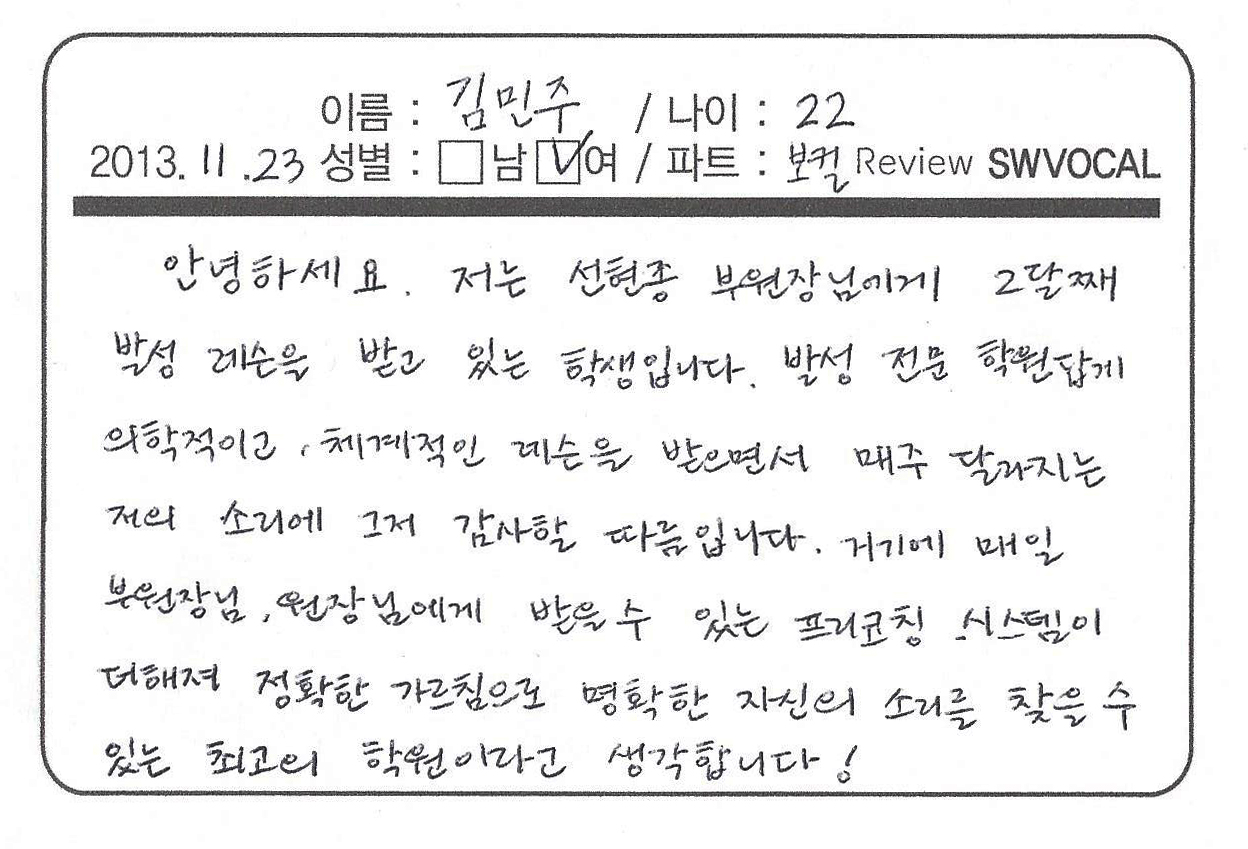 이름 : 김민주 / 나이 : 22
2013. 11 .23 성별 : □ 남 ☑ 여 / 파트 : 보컬 Review SWVOCAL
안녕하세요. 저는 선현종 부원장님에게 2달째
발성 레슨을 받고 있는 학생입니다. 발성 전문 학원답게
의학적이고, 체계적인 레슨을 받으면서 매주 달라지는
저의 소리에 그저 감사할 따름입니다. 거기에 매일
부원장님, 원장님에게 받을 수 있는 프리코칭 시스템이
더해져 정확한 가르침으로 명확한 자신의 소리를 찾을 수
있는 최고의 학원이라고 생각합니다!